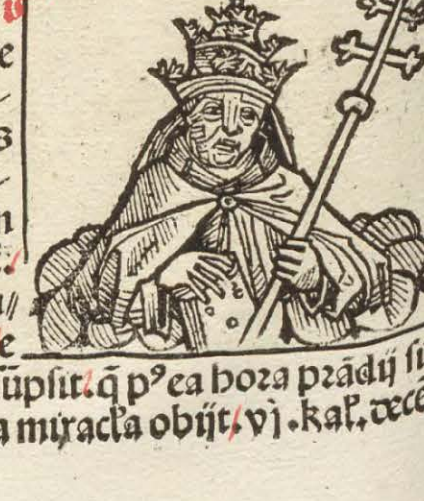 e
s
n
e
ūpsit. q̄ pꝰ ea hora prādij
a miracła obijt. vj. kał. decē